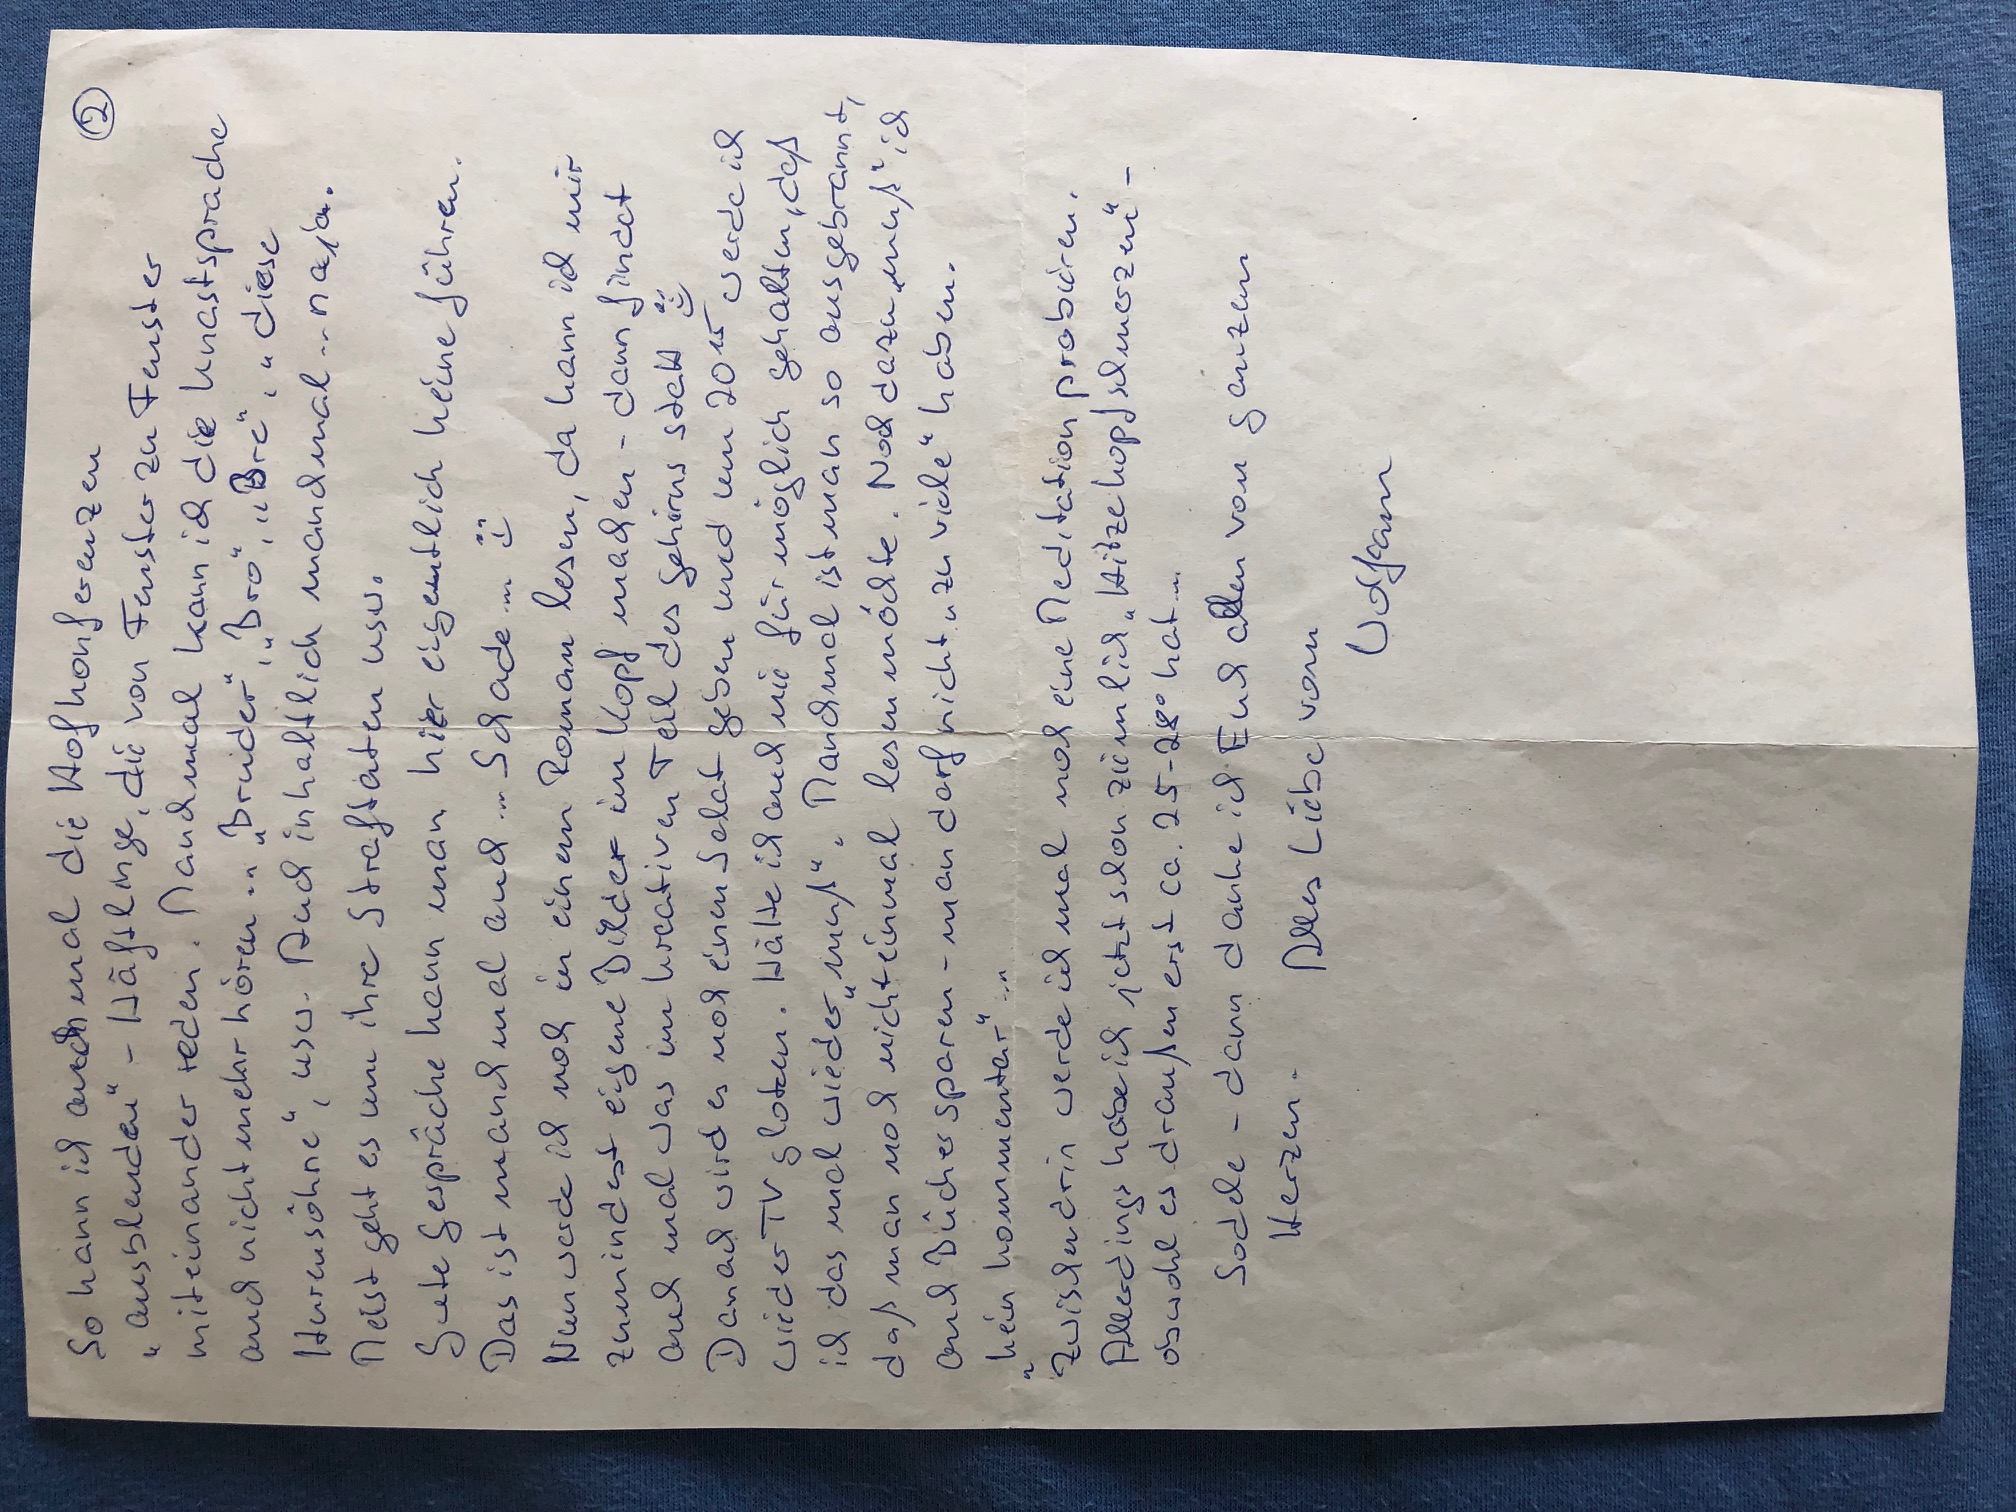 ②
So kann ich auch mal die Hofkonferenzen
"ausblenden" - Häftlinge, die von Fenster zu Fenster
miteinander reden. Manchmal kann ich die Knastsprache
auch nicht mehr hören... "Bruder", "Bro", "Bre", "diese
Hurensöhne", usw. Auch inhaltlich manchmal... naja.
Meist geht es um ihre Straftaten usw.
Gute Gespräche kann man hier eigentlich keine führen.
Das ist manchmal auch... Schade... ü
Nun werde ich noch in einem Roman lesen, da kann ich mir
zumindest eigene Bilder im Kopf machen - dann findet
auch mal was im kreativen Teil des Gehirns statt ü
Danach wird es noch einen Salat geben und um 20¹⁵ werde ich
wieder TV gloten. Hätte ich auch nie für möglich gehalten, daß
ich das mal wieder "muß". Manchmal ist man so ausgebrannt,
daß man noch nicht einmal lesen möchte. Noch dazu "muß" ich
auch Bücher sparen - man darf nicht "zu viele" haben.
"Kein Kommentar"...
Zwischendrin werde ich mal noch eine Meditation probieren.
Allerdings habe ich jetzt schon ziemlich "Hitzekopfschmerzen" -
obwohl es draußen erst ca. 25-28° hat...
Sodele - dann danke ich Euch allen von ganzem
Herzen. Alles Liebe vom
Wolfram